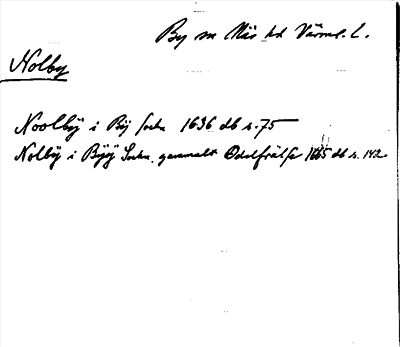 By sn Näs hd Värml. l.
Nolby
Noolbÿ i Bÿ sockn 1636 db s. 75
Nolbÿ i Bÿÿ Sockn, gammalt Odelfrälse 1665 db s. 142.